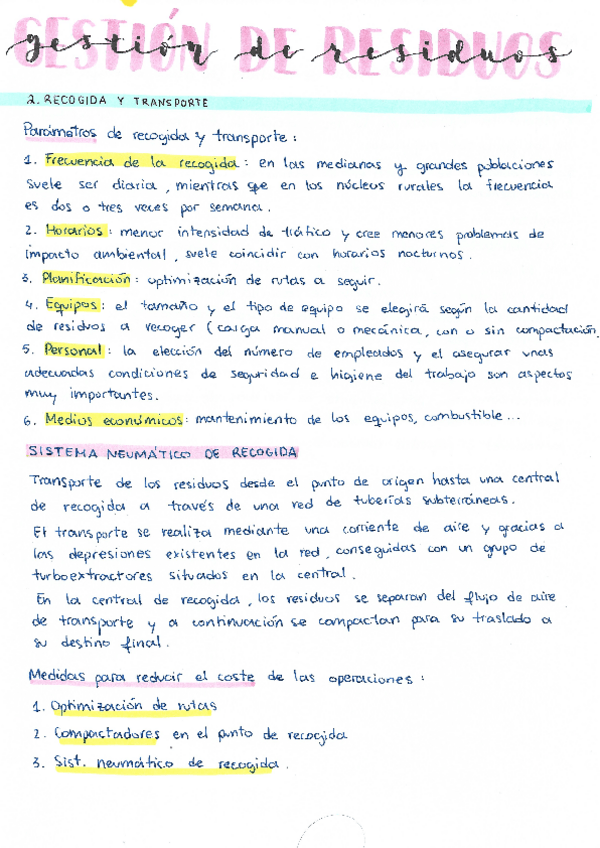 GESTIÓN DE RESIDUOS
gestión de residuos
2. RECOGIDA Y TRANSPORTE
Parámetros de recogida y transporte :
1. Frecuencia de la recogida : en las medianas y grandes poblaciones
suele ser diaria, mientras que en los núcleos rurales la frecuencia
es dos o tres veces por semana.
2. Horarios : menor intensidad de tráfico y cree menores problemas de
impacto ambiental, suele coincidir con horarios nocturnos.
3. Planificación : optimización de rutas a seguir.
4. Equipos : el tamaño y el tipo de equipo se elegirá según la cantidad
de residuos a recoger (carga manual o mecánica, con o sin compactación,
5. Personal : la elección del número de empleados y el asegurar unas
adecuadas condiciones de seguridad e higiene del trabajo son aspectos
muy importantes.
6. Medios económicos : mantenimiento de los equipos, combustible...
SISTEMA NEUMÁTICO DE RECOGIDA
Transporte de los residuos desde el punto de origen hasta una central
de recogida a través de una red de tuberías subterráneas.
El transporte se realiza mediante una corriente de aire y gracias a
las depresiones existentes en la red, conseguidas con un grupo de
turboextractores situados en la central.
En la central de recogida, los residuos se separan del flujo de aire
de transporte y a continuación se compactan para su traslado a
su destino final.
Medidas para reducir el coste de las operaciones :
1. Optimización de rutas
2. Compactadores en el punto de recogida
3. Sist. neumático de recogida.